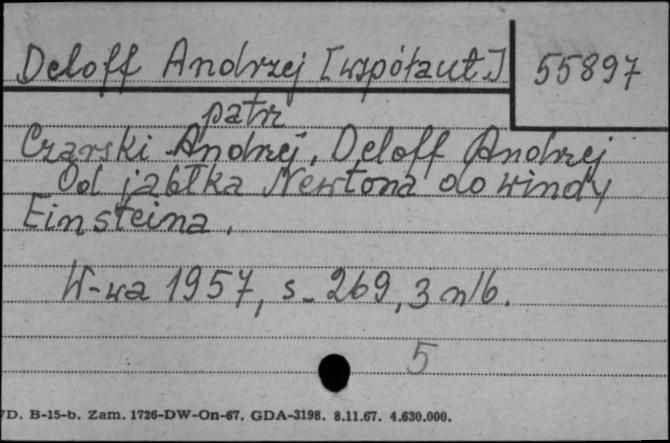 Deloff Andrzej [współaut.] 55897
patrz
Czarski Andrzej, Deloff Andrzej
Od jabłka Newtona do windy
Einsteina.
W-wa 1957, s. 269, 3 nlb.
5
D. B-15-b. Zam. 1726-DW-On-67. GDA-3198. 8.11.67. 4.630.000.